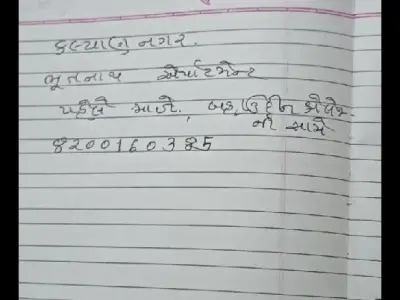 કલ્યાણ નગર.
ભૂતનાથ એપાર્ટમેન્ટ
પહેલે માળે, બદરૂદ્દીન કોલેજ
ની સામે
8200160325